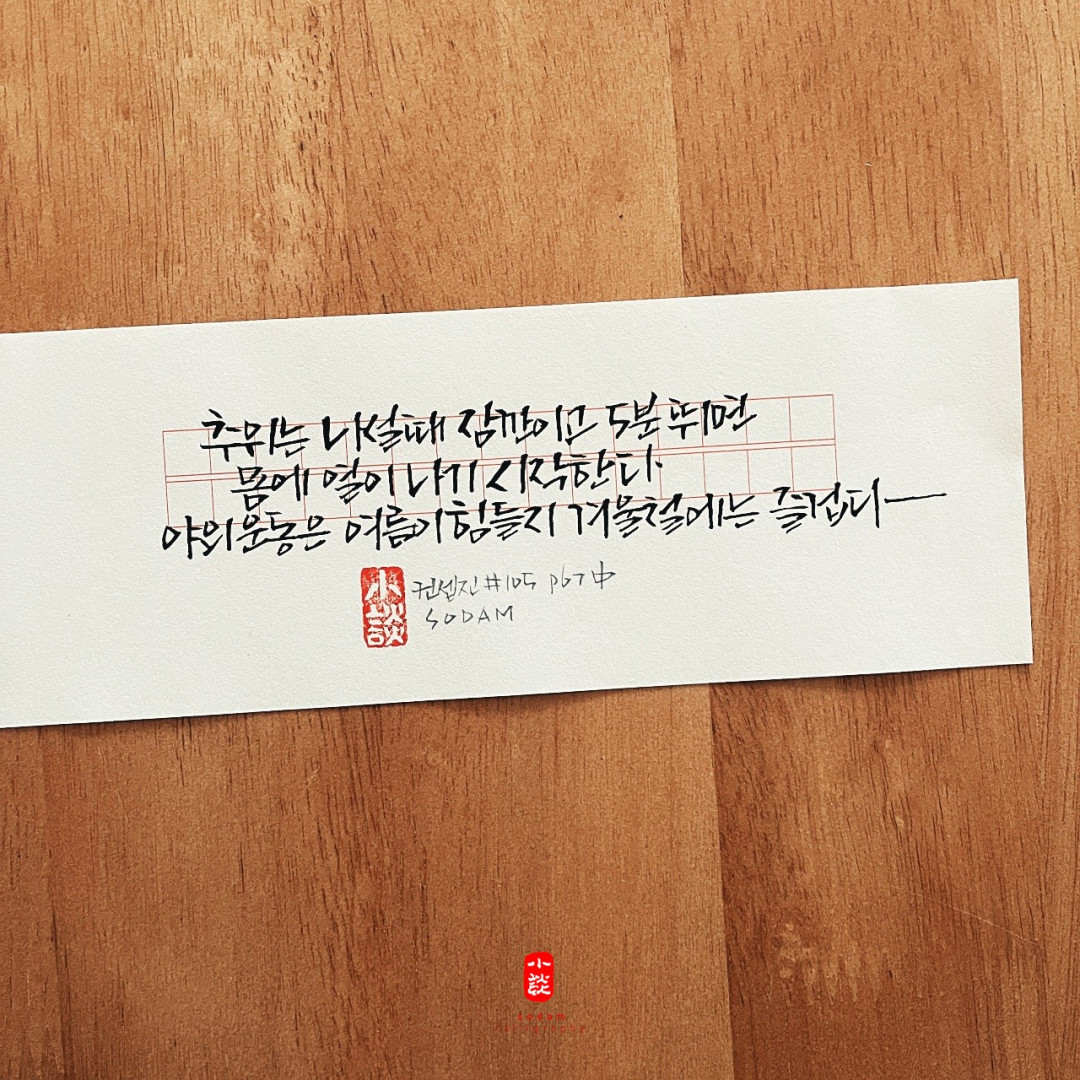 추위는 나설때 잠깐이고 5분 뛰면
몸에 열이 나기 시작한다.
야외운동은 여름이 힘들지 겨울철에는 즐겁다
小談
컨셉진 #105 p67 中
SODAM
小談
sodam
calligraphy